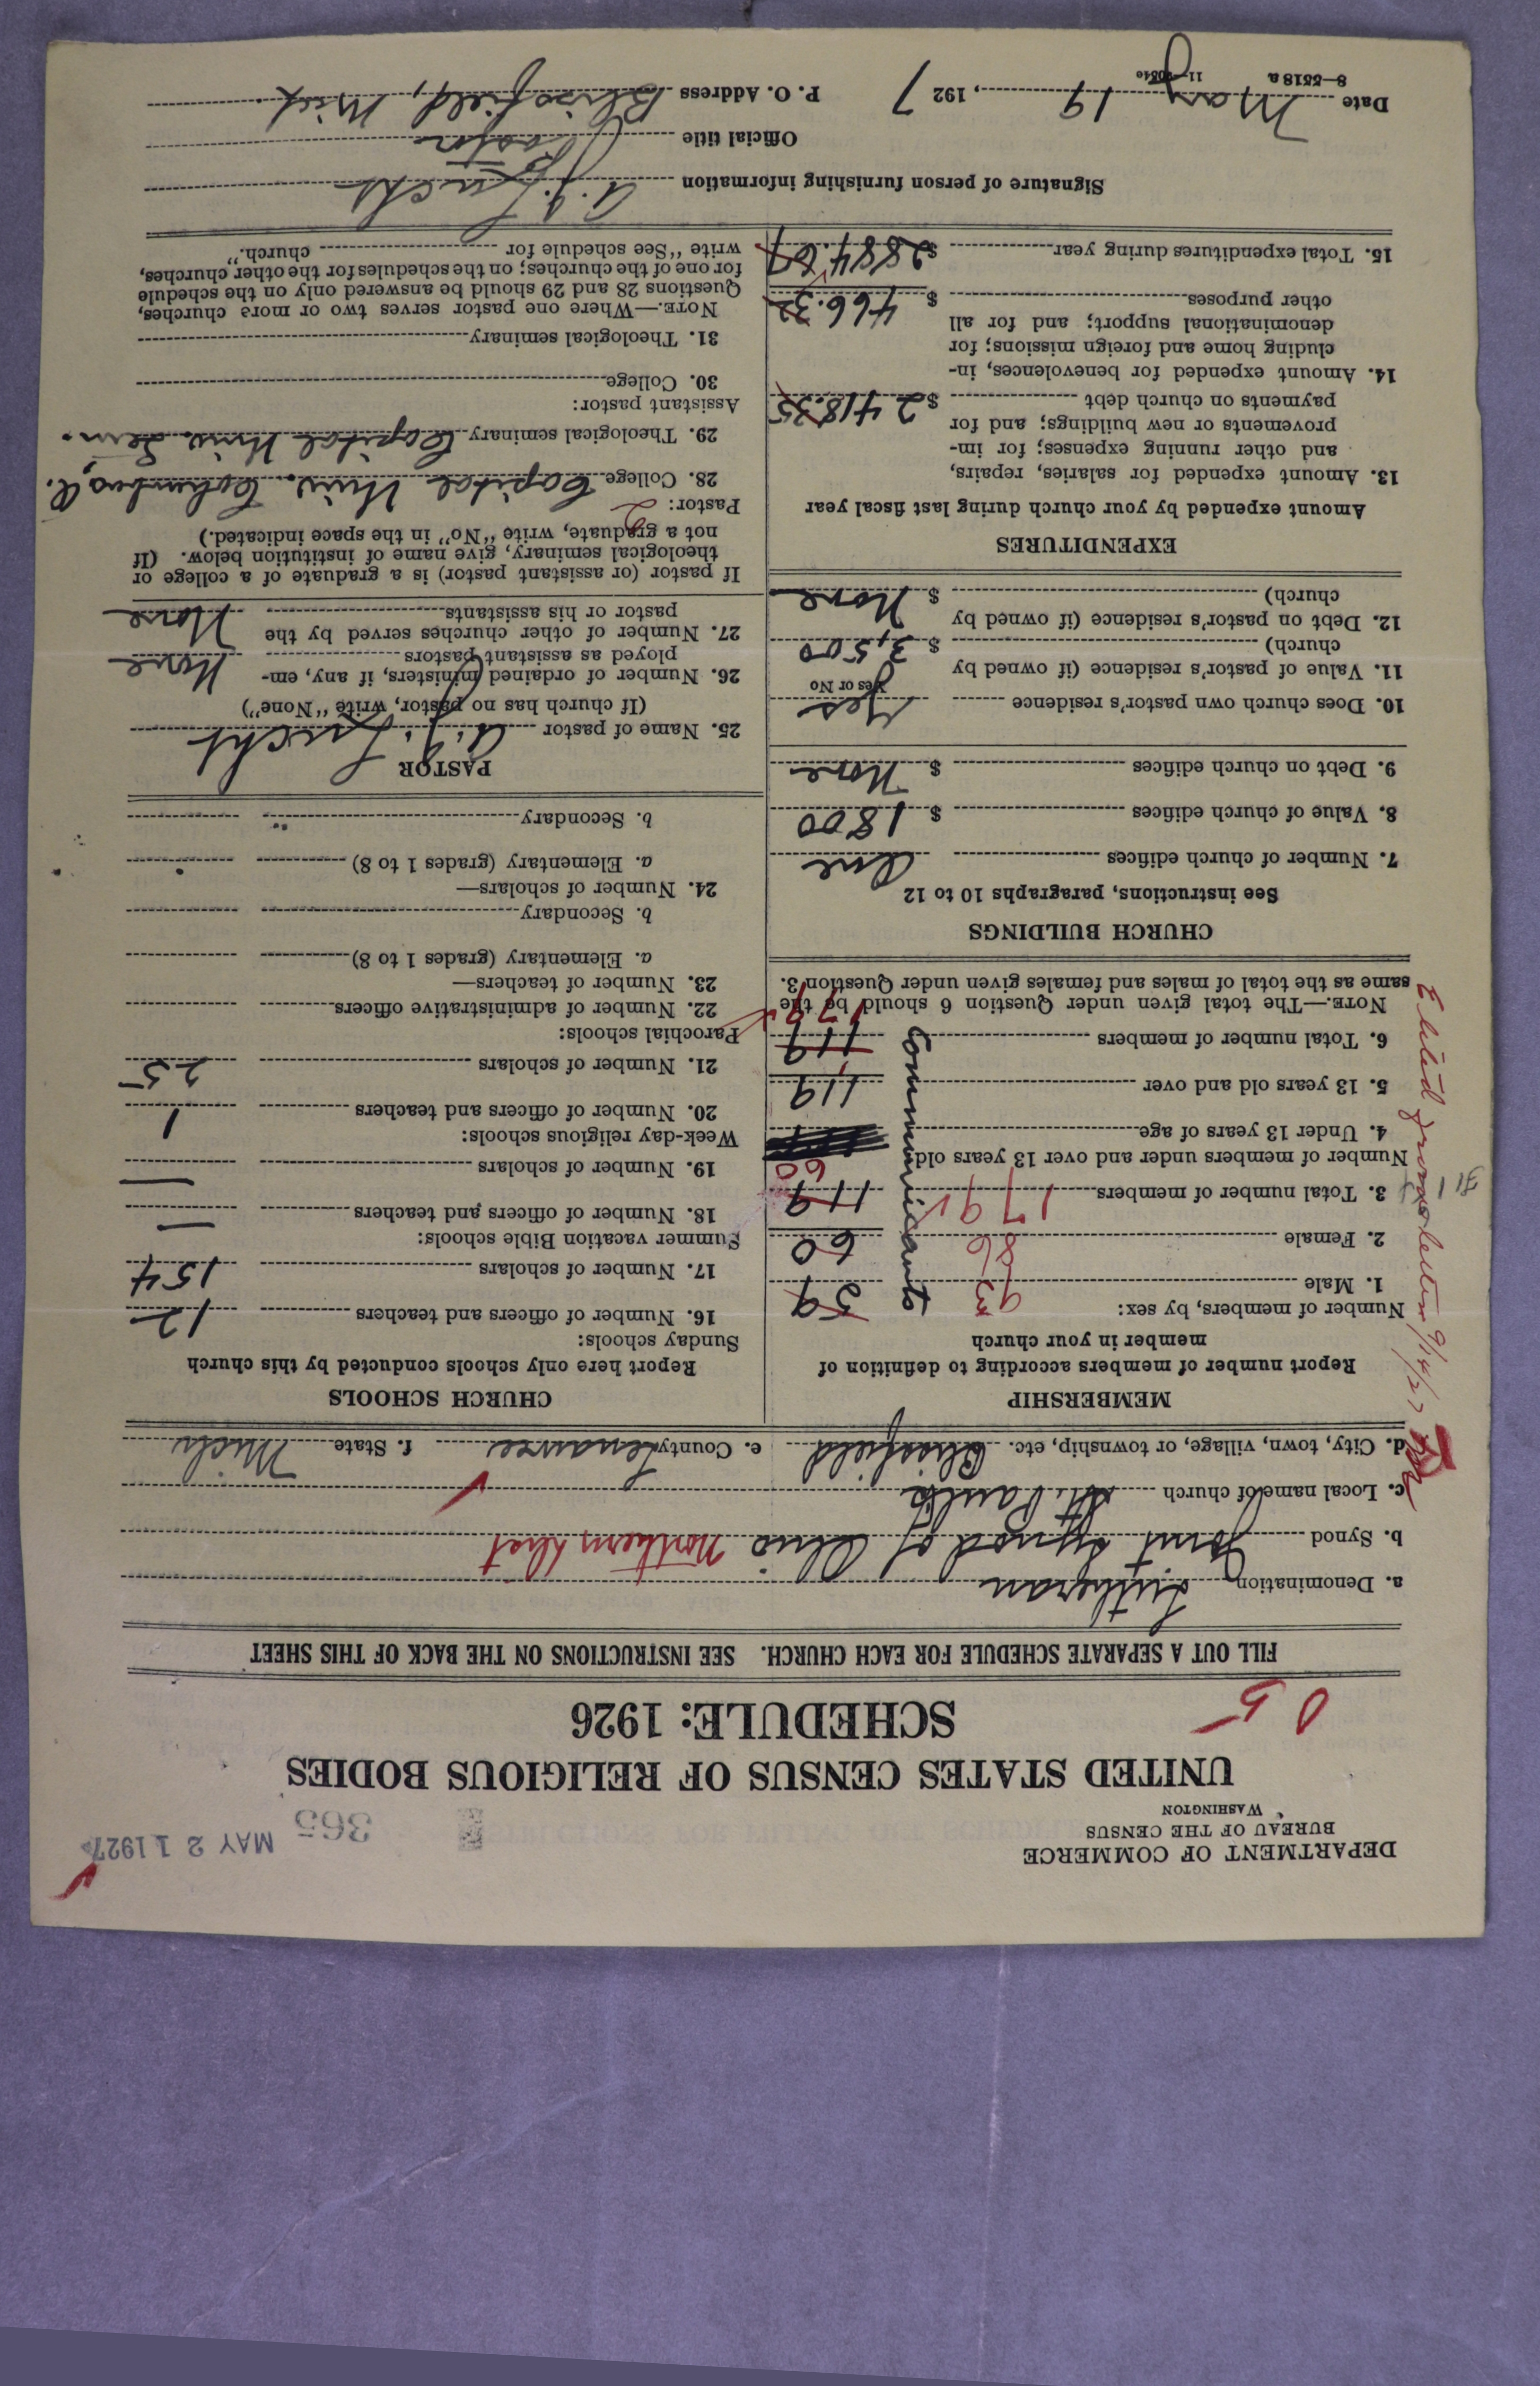 DEPARTMENT OF COMMERCE
BUREAU OF THE CENSUS
WASHINGTON
365
MAY 21 1927
UNITED STATES CENSUS OF RELIGIOUS BODIES
SCHEDULE: 1926
05
FILL OUT A SEPARATE SCHEDULE FOR EACH CHURCH. SEE INSTRUCTIONS ON THE BACK OF THIS SHEET
a. Denomination Lutheran
b. Synod Joint Synod of Ohio Northern Dist
c. Local name of church St. Pauls
d. City, town, village, or township, etc. Blissfield e. County Lenawee f. State Mich
MEMBERSHIP
Report number of members according to definition of
member in your church
Number of members, by sex:
1. Male 93 59
2. Female 86 60
3. Total number of members 179 119
60
Communicants
Number of members under and over 13 years old
4. Under 13 years of age
5. 13 years old and over 119
6. Total number of members 119
179
NOTE.—The total given under Question 6 should be the
same as the total of males and females given under Question 3.
CHURCH BUILDINGS
See instructions, paragraphs 10 to 12
7. Number of church edifices One
8. Value of church edifices $ 1800
9. Debt on church edifices $ None
10. Does church own pastor's residence Yes
Yes or No
11. Value of pastor's residence (if owned by
church) $ 3,500
12. Debt on pastor's residence (if owned by
church) $ None
EXPENDITURES
Amount expended by your church during last fiscal year
13. Amount expended for salaries, repairs,
and other running expenses; for im-
provements or new buildings; and for
payments on church debt $ 2418.35
14. Amount expended for benevolences, in-
cluding home and foreign missions; for
denominational support; and for all
other purposes $ 466.32
15. Total expenditures during year $ 2884.67
CHURCH SCHOOLS
Report here only schools conducted by this church
Sunday schools:
16. Number of officers and teachers 12
17. Number of scholars 154
Summer vacation Bible schools:
18. Number of officers and teachers —
19. Number of scholars —
Week-day religious schools:
20. Number of officers and teachers 1
21. Number of scholars 25
Parochial schools:
22. Number of administrative officers
23. Number of teachers—
a. Elementary (grades 1 to 8)
b. Secondary
24. Number of scholars—
a. Elementary (grades 1 to 8)
b. Secondary
PASTOR
25. Name of pastor
(If church has no pastor, write "None")
26. Number of ordained ministers, if any, em-
ployed as assistant pastors None
27. Number of other churches served by the
pastor or his assistants None
If pastor (or assistant pastor) is a graduate of a college or
theological seminary, give name of institution below. (If
not a graduate, write "No" in the space indicated.)
Pastor: 2
28. College Capital Univ. Columbus, O.
29. Theological seminary Capital Univ. Sem.
Assistant pastor:
30. College
31. Theological seminary
NOTE.—Where one pastor serves two or more churches,
Questions 28 and 29 should be answered only on the schedule
for one of the churches; on the schedules for the other churches,
write "See schedule for church."
Signature of person furnishing information
Official title Pastor
Date May 19, 1927 P. O. Address Blissfield, Mich.
8—5518a
from letter 9/14/27